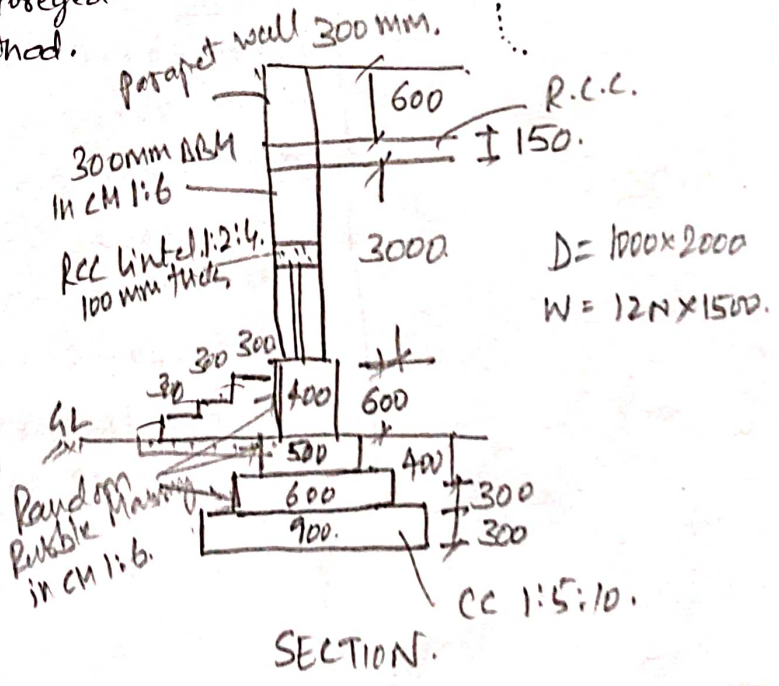 thod.
parapet wall 300 mm.
600
R.C.C.
150.
300mm BBM
in CM 1:6
RCC lintel 1:2:4.
100 mm thick
3000
D = 1000 x 2000
W = 12N x 1500.
300
300
30
400
600
GL
500
400
600
300
900.
300
Random
Rubble Masonry
in CM 1:6.
CC 1:5:10.
SECTION.